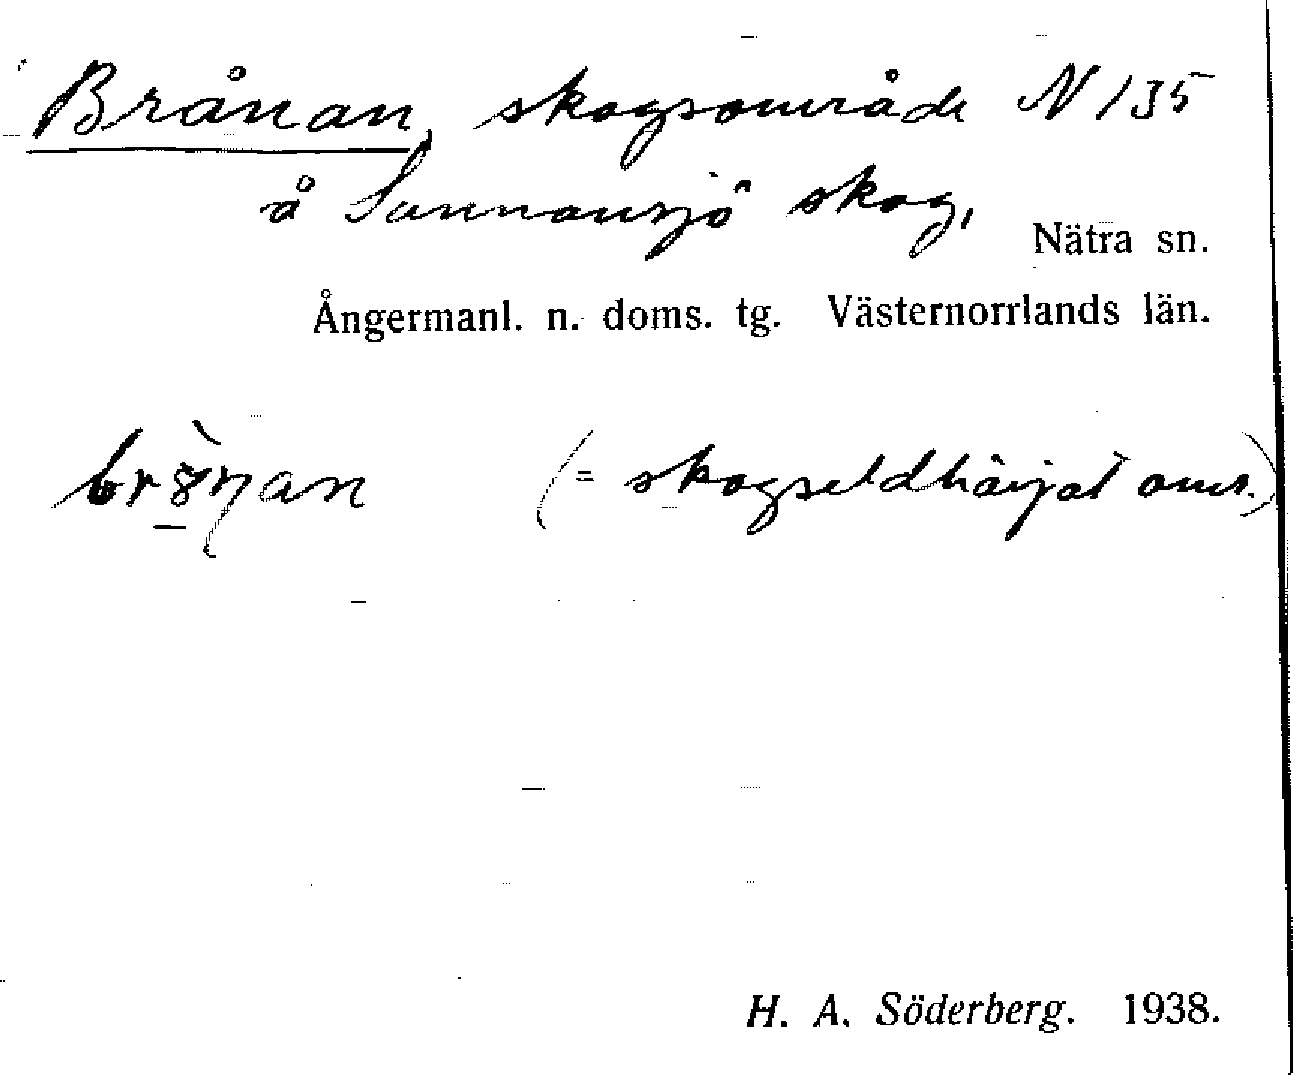 Brånan, skogsområde N 135
å Sunnansjö skog,
Nätra sn.
Ångermanl. n. doms. tg. Västernorrlands län.
(= skogseldhärjat omr.)
H. A. Söderberg. 1938.